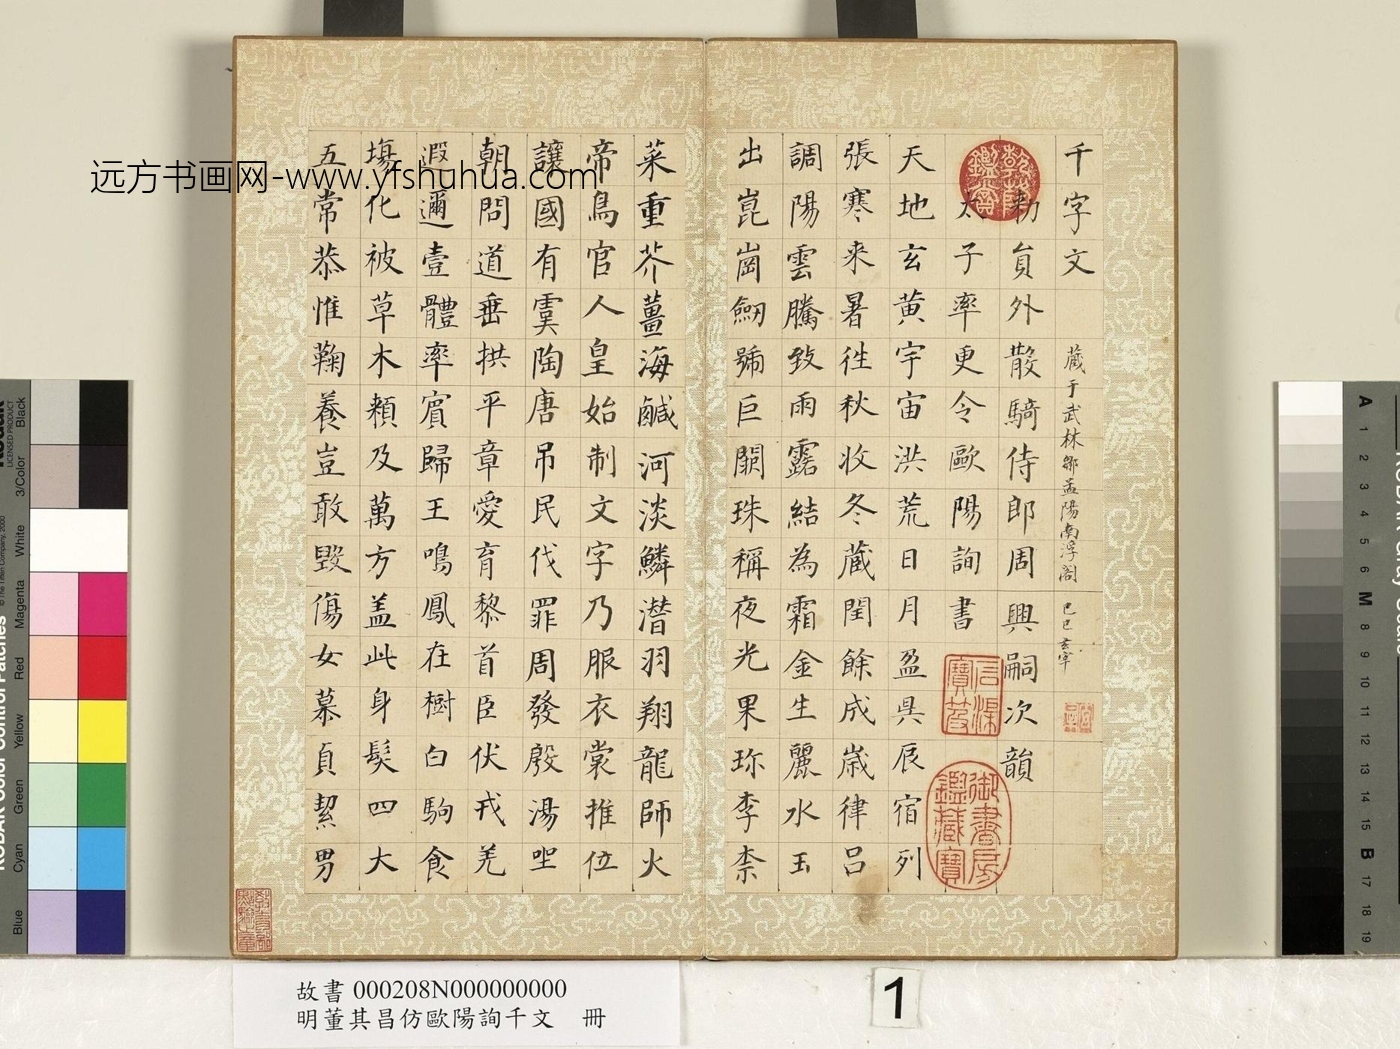 千字文
藏于武林鄒孟陽南浮閣 己巳玄宰
勅員外散騎侍郎周興嗣次韻
太子率更令歐陽詢書
天地玄黃宇宙洪荒日月盈昃辰宿列
張寒来暑往秋收冬藏閏餘成歲律呂
調陽雲騰致雨露結為霜金生麗水玉
出崑崗劒號巨闕珠稱夜光果珎李柰
菜重芥薑海鹹河淡鱗潛羽翔龍師火
帝鳥官人皇始制文字乃服衣裳推位
讓國有虞陶唐吊民伐罪周發殷湯坐
朝問道垂拱平章愛育黎首臣伏戎羌
遐邇壹體率賓歸王鳴鳳在樹白駒食
塲化被草木頼及萬方盖此身髮四大
五常恭惟鞠養豈敢毀傷女慕貞絜男
乾隆鑑賞
石渠寶笈
御書房鑑藏寶
远方书画网-www.yfshuhua.com
故書 000208N000000000
明董其昌仿歐陽詢千文 冊
1
KODAK Color Control Patches
Kodak
LICENSED PRODUCT
© The Tiffen Company, 2000
Blue
Cyan
Green
Yellow
Red
Magenta
White
3/Color
Black
A
1
2
3
4
5
6
M
8
9
10
11
12
13
14
15
B
17
18
19